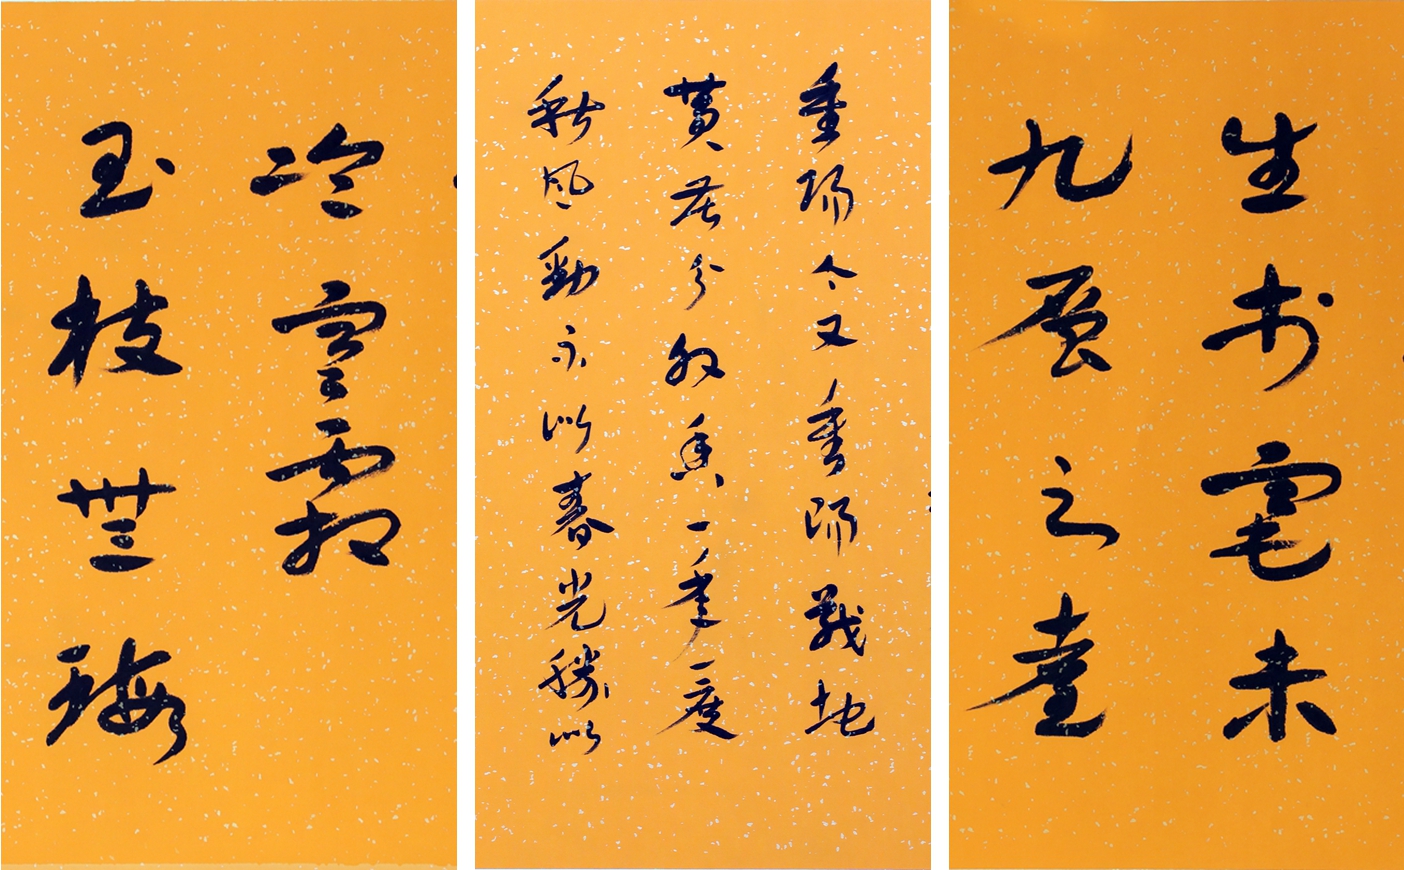 生於毫末
九層之臺
重陽今又重陽戰地
黃花分外香一年一度
秋風勁不似春光勝似
冷雲霜
玉枝無